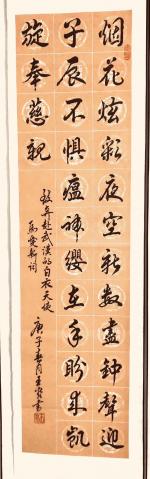 烟花炫彩夜空新数尽钟聲迎
子辰不惧瘟神缨在手盼来凯
旋奉慈親
致奔赴武漢的白衣天使
為愛新詞
庚子春月王
書